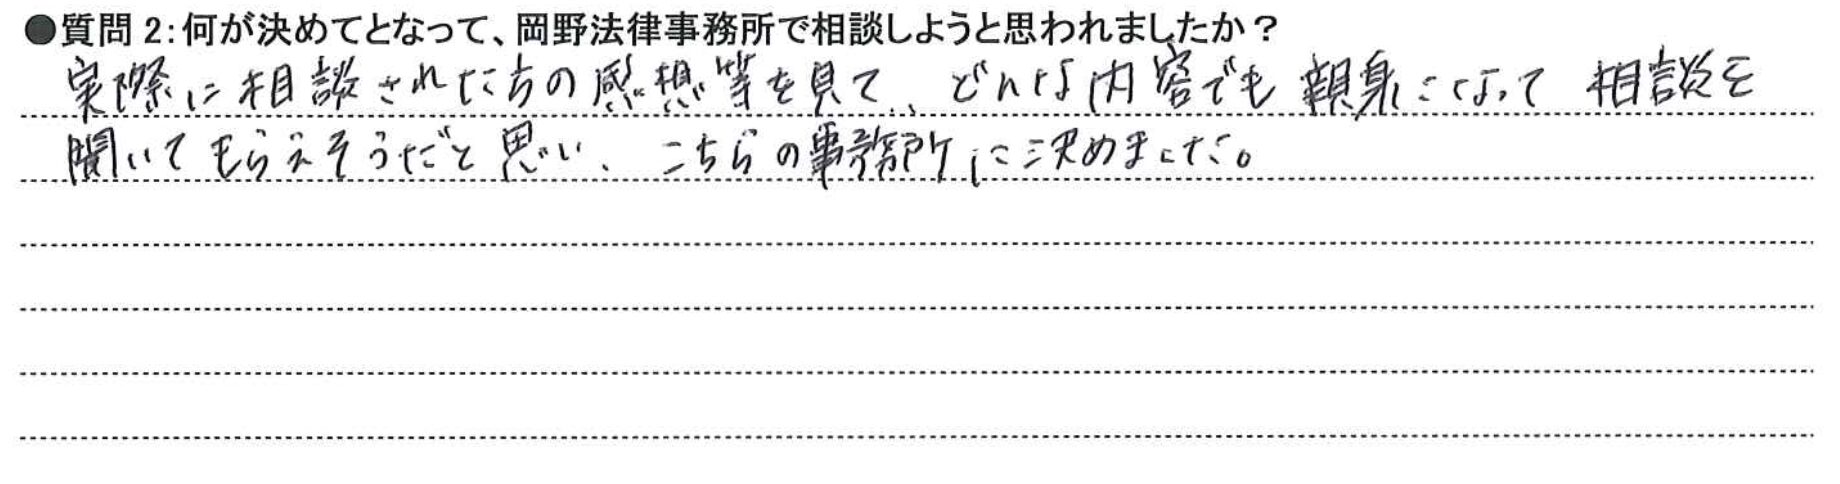 ●質問2:何が決めてとなって、岡野法律事務所で相談しようと思われましたか?
実際に相談された方の感想等を見て、どんな内容でも親身になって相談を
聞いてもらえそうだと思い、こちらの事務所に決めました。